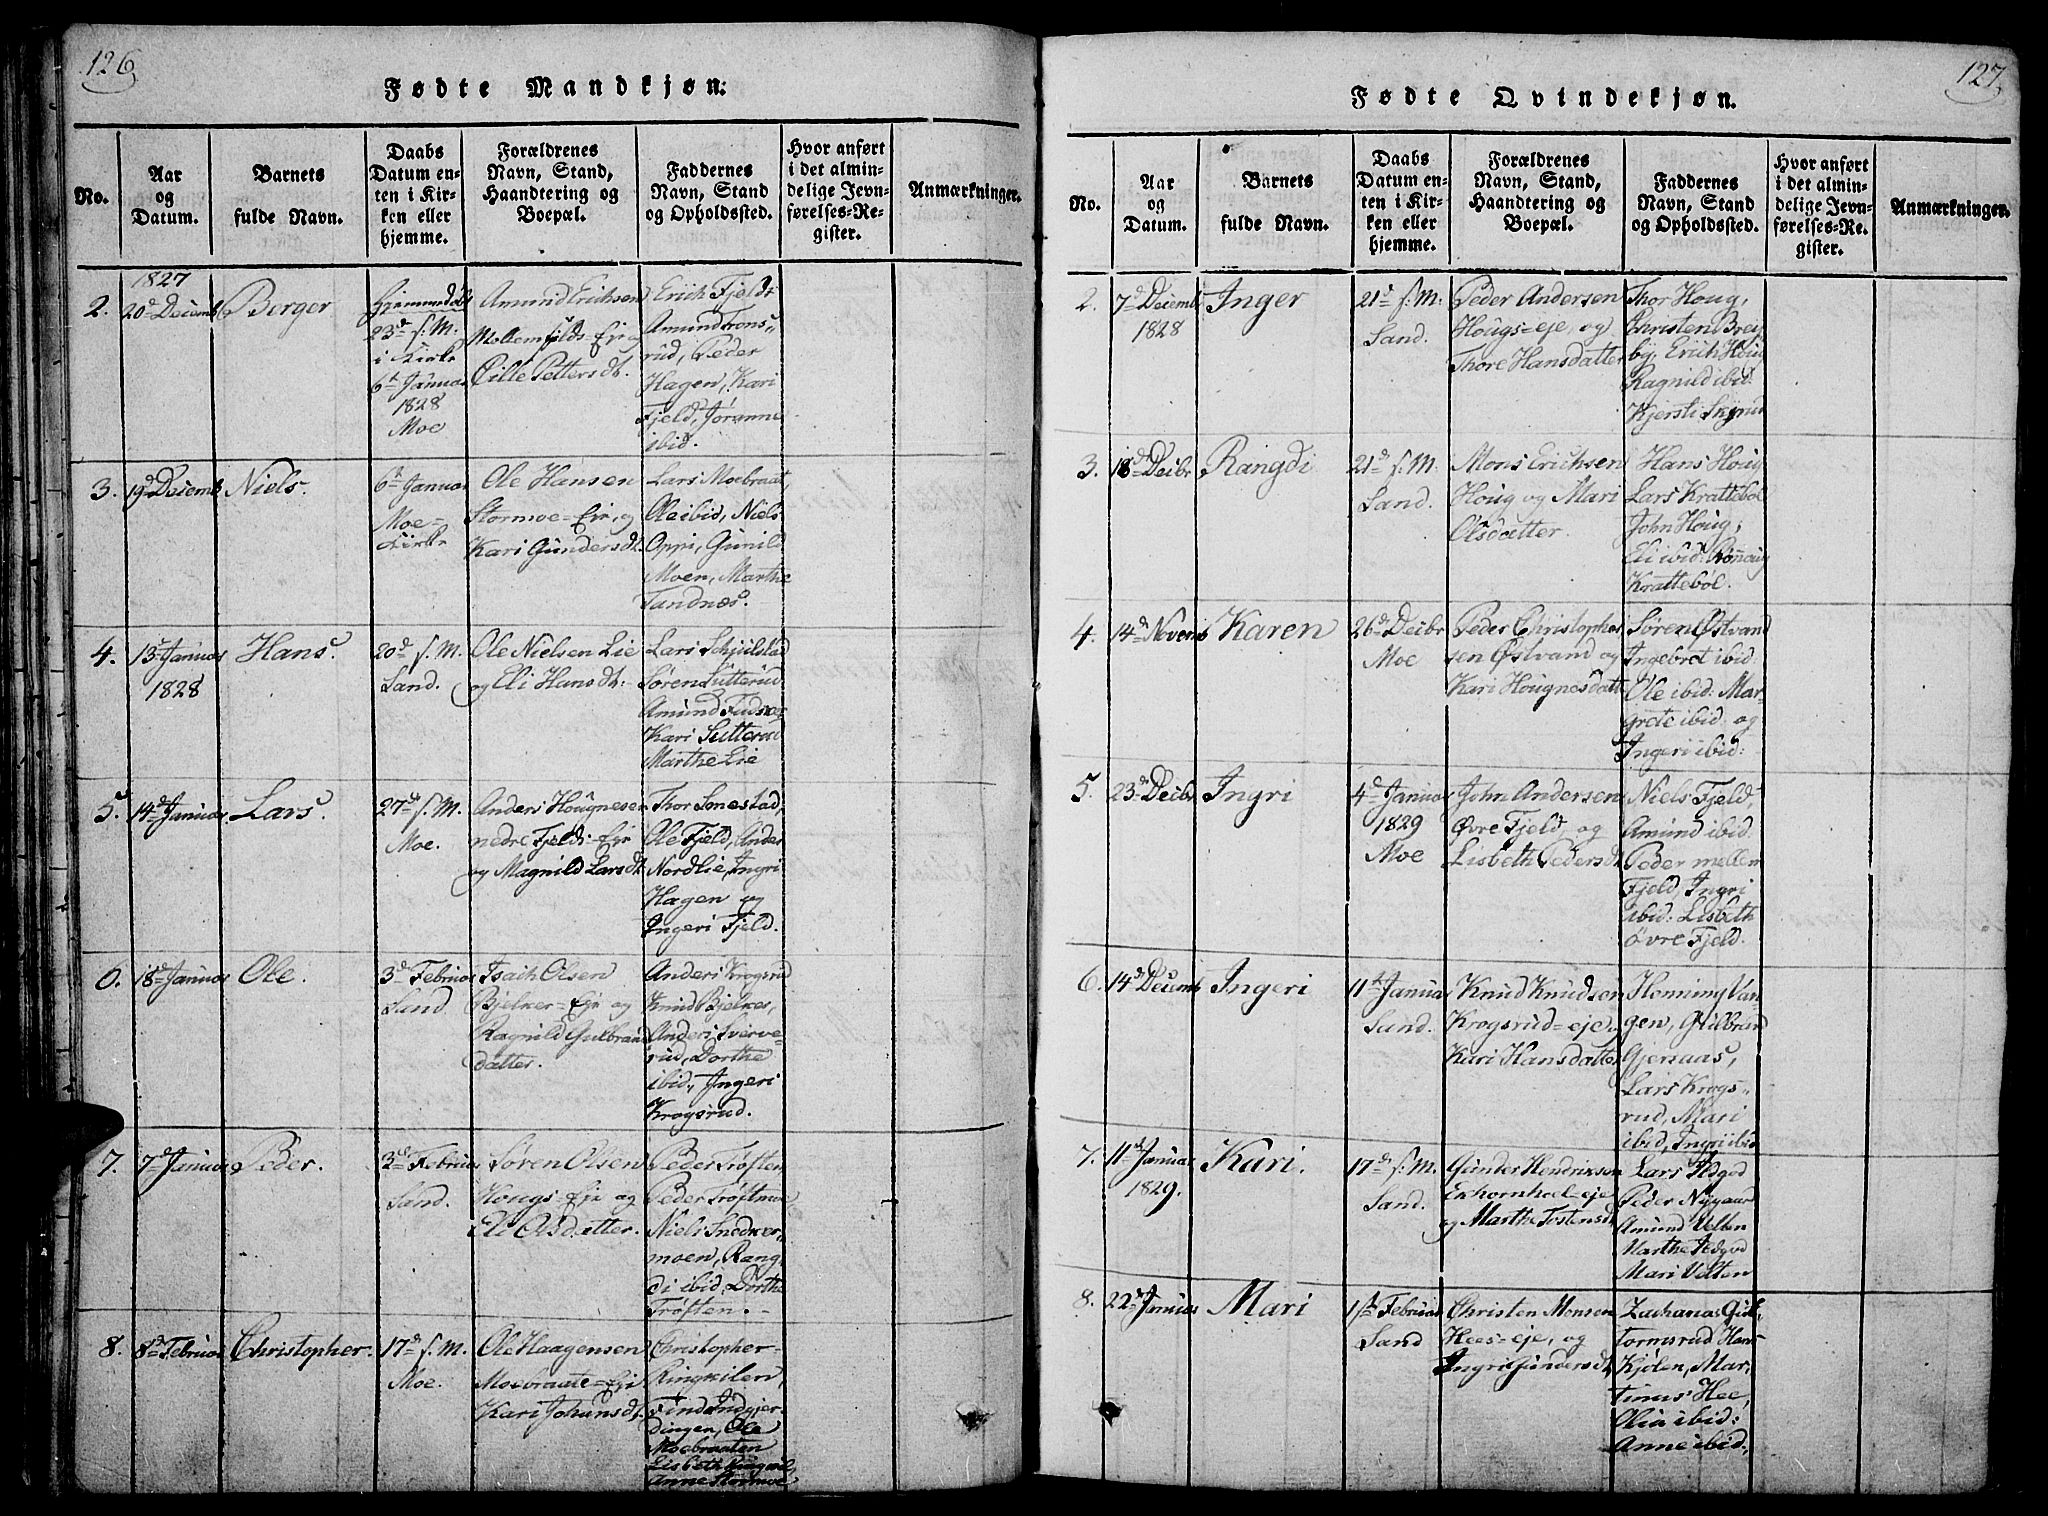 126
Fødte Mandkjøn:
No.
Aar
og
Datum.
Barnets
fulde Navn.
Daabs
Datum en-
ten i Kir-
ken eller
hjemme.
Forældrenes
Navn, Stand,
Haandtering og
Boepæl.
Faddernes
Navn, Stand
og Opholdssted.
Hvor anført
i det almin-
delige Jevn-
førelses-Re-
gister.
Anmærkninger.
2.
1827
20d Decemb
Berger
23d s: M.
i Kirke
6t Januar
1828
Moe
Amund Erichsen
Eje og
Cille Pettersdt.
Erich Fjeld,
Amund Trons-
rud, Peder
Hagen, Kari
Fjeld, Joranne
ibid.
3.
19d Decemb
Niels.
6t Januar
Moe-
Kirke
Ole Hansen
Stormoe-Eje, og
Kari Gundersdt.
Lars Moebraat,
Ole ibid, Niels
Oppi, Gunild
Moen, Marthe
Tandnes.
4.
13d Januar
1828
Hans.
20d s. M.
Sand.
Ole Nielsen Lie
og Eli Hansdt:
Lars
Søren Lutterud
Amund
Kari Lutterud
Marthe Lie
5.
14d Januar
Lars.
27d s. M.
Moe.
Anders Hougnesen
nedre Fjeld-Eje
og Magnild Larsdt.
Thor Sonestad,
Ole Fjeld, Anders
Nordlie, Ingri
Hagen og
Ingeri Fjeld.
6.
18d Januar
Ole.
3d Februar
Sand
Isach Olsen
Bjelker-Eje og
Ragnild Gulbrands
datter.
Anders Krogsrud
Knud Bjelker,
Anders Sverve-
rud, Dorthe
ibid, Ingeri
Krogsrud.
7.
7d Januar
Peder.
3d Februar
Sand.
Søren Olsen
Hougs-Eje og
Eli Olsdatter.
Peder Trøften
Peder Trøftmoe
Niels Snedker-
moen, Rang-
di ibid, Dorthe
Trøften.
8.
8d Februar
Christopher.
17d s. M.
Moe.
Ole Haagensen
Moebraate-Eje
Kari Johansdt.
Christopher
Ringkilen,
Find Indgjer-
dingen, Ole
Moebraaten
Lisbeth Ringkil,
Anne Stormoe
127
Fødte Qvindekjøn.
No.
Aar
og
Datum.
Barnets
fulde Navn.
Daabs
Datum en-
ten i Kir-
ken eller
hjemme.
Forældrenes
Navn, Stand,
Haandtering og
Boepæl.
Faddernes
Navn, Stand
og Opholdssted.
Hvor anført
i det almin-
delige Jevn-
førelses-Re-
gister.
Anmærkninger.
2.
7d Decemb
1828
Inger
21d s: M:
Sand.
Peder Andersen
Hougs-eje, og
Thore Hansdatter
Thor Houg,
Christen Brey
by, Erich Houg
Ragnild ibid.
Kjersti
3.
18d Decbr
Rangdi
21d s. M.
Sand.
Mons Erichsen
Houg og Mari
Olsdatter.
Hans Houg
Lars Krattebøl
John Houg,
Eli ibid: Rønnaug
Krattebøl.
4.
14d Novemb
Karen
26d Decbr
Moe
Peder Christopher
sen Østvand og
Kari Hougnesdatt
Søren Østvand
Ingebret ibid.
Ole ibid: Mar-
grete ibid: og
Ingeri ibid:
5.
23d Decbr
Ingri
4d Januar
1829
Moe
John Andersen
Øvre Fjeld, og
Lisbeth Pedersdt.
Niels Fjeld,
Amund ibid.
Peder mellem
Fjeld, Ingri
ibid: Lisbeth
øvre Fjeld.
6.
14d Decemb
Ingeri
11t Januar
Sand.
Knud Knudsen
Krogsrud-eje,
Kari Hansdatter
Henning Van-
gen, Gulbrand
Gjersaas,
Lars Krogs-
rud, Mari
ibid, Ingri ibid
7.
11d Januar
1829.
Kari.
17d s: M.
Sand.
Gunder Hendriksen
Exhornhoel-eje
og Marthe Tostensdt
Lars
Peder Nygaar
Amund Velten
Marthe
Mari Velten
8.
22d Januar
Mari
1ste Februar
Sand
Christen Monsen
Hees-eje, og
Ingri Gundersdt
Zacharias Gut-
tormsrud Hans
Kjølen, Mar-
tinus Hee,
Olia ibid:
Anne ibid.